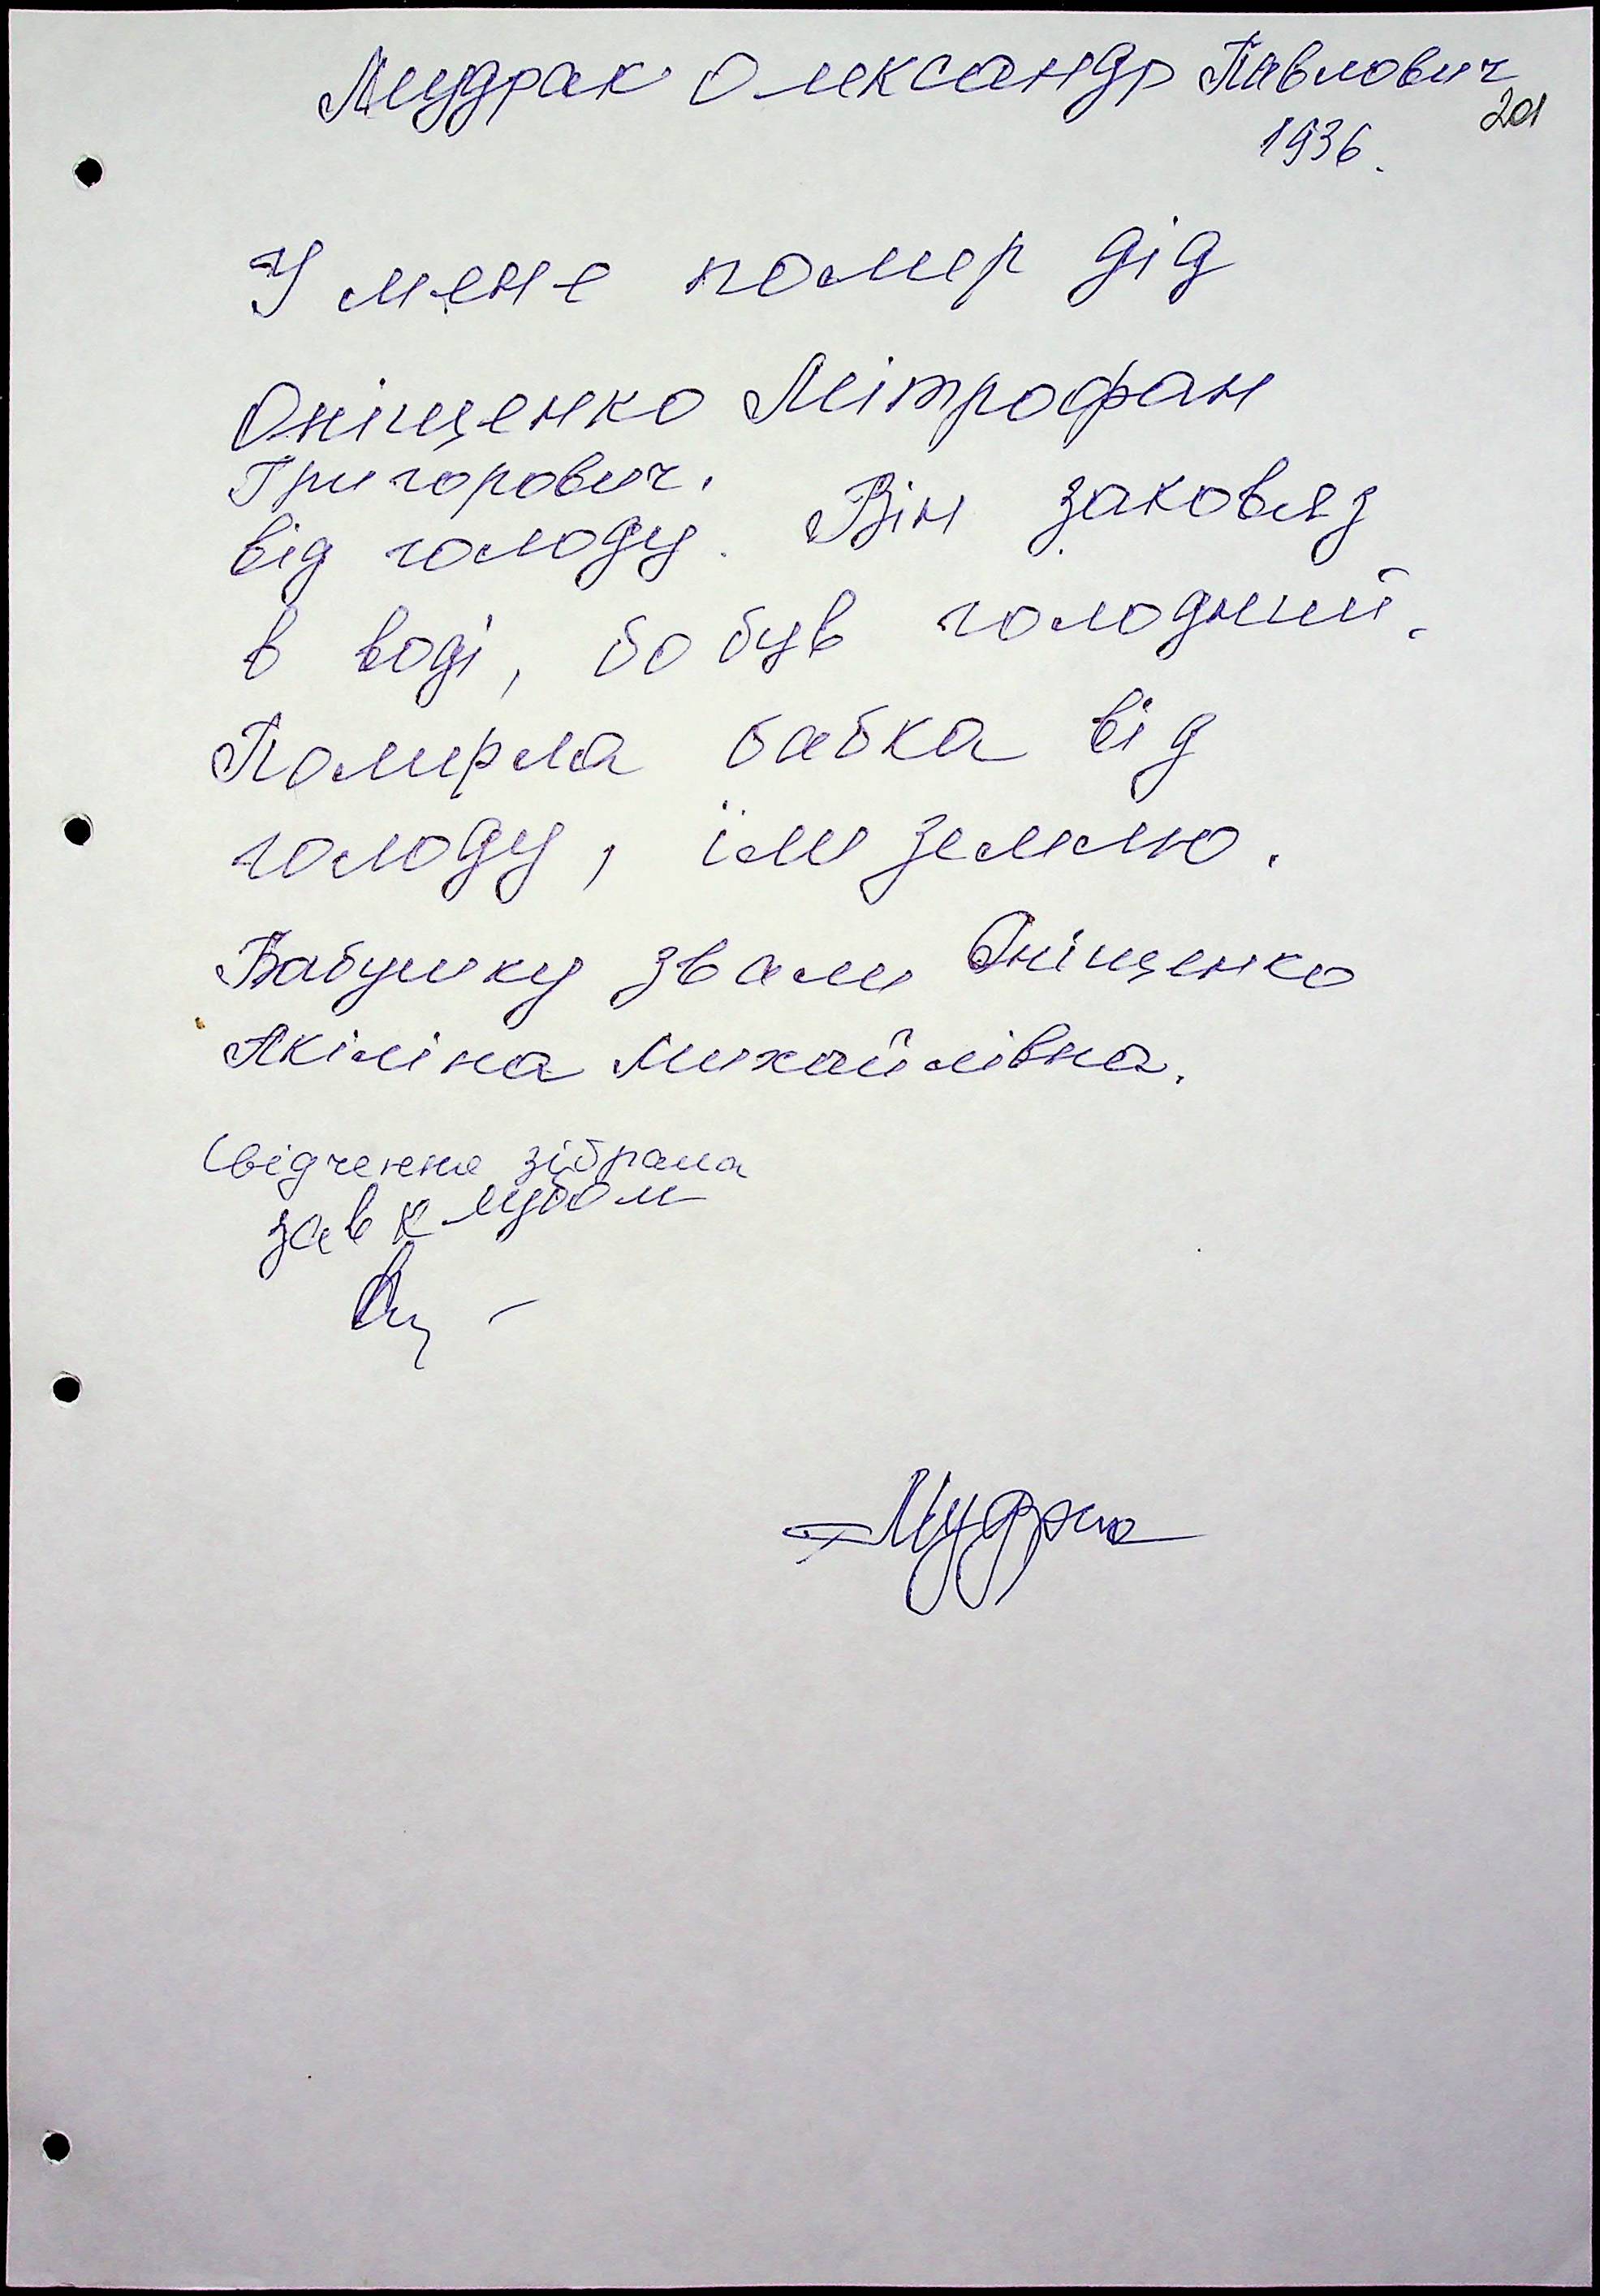 Мудрак Олександр Павлович
201
1936.
У мене помер дід
Оніщенко Мітрофан
Григорович.
від голоду. Він заковяз
в воді, бо був голодний.
Помирла бабка від
голоду, їли землю.
Бабушку звали Оніщенко
Акіліна Михайлівна.
Свідчення зібрала
зав клубом
Мудрак